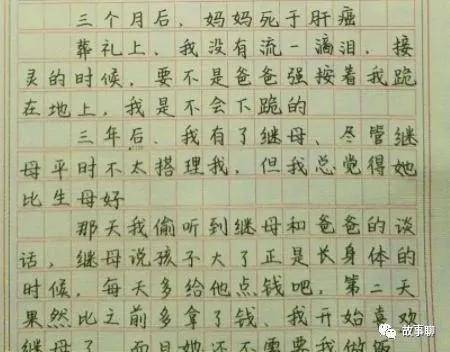 三个月后，妈妈死于肝癌
葬礼上，我没有流一滴泪，接
灵的时候，要不是爸爸强按着我跪
在地上，我是不会下跪的
三年后，我有了继母、尽管继
母平时不太搭理我，但我总觉得她
比生母好
那天我偷听到继母和爸爸的谈
话，继母说孩子大了正是长身体的
时候，每天多给他点钱吧，第二天
果然比之前多拿了钱、我开始喜欢
继母了，而且她还不需要我做饭
故事聊